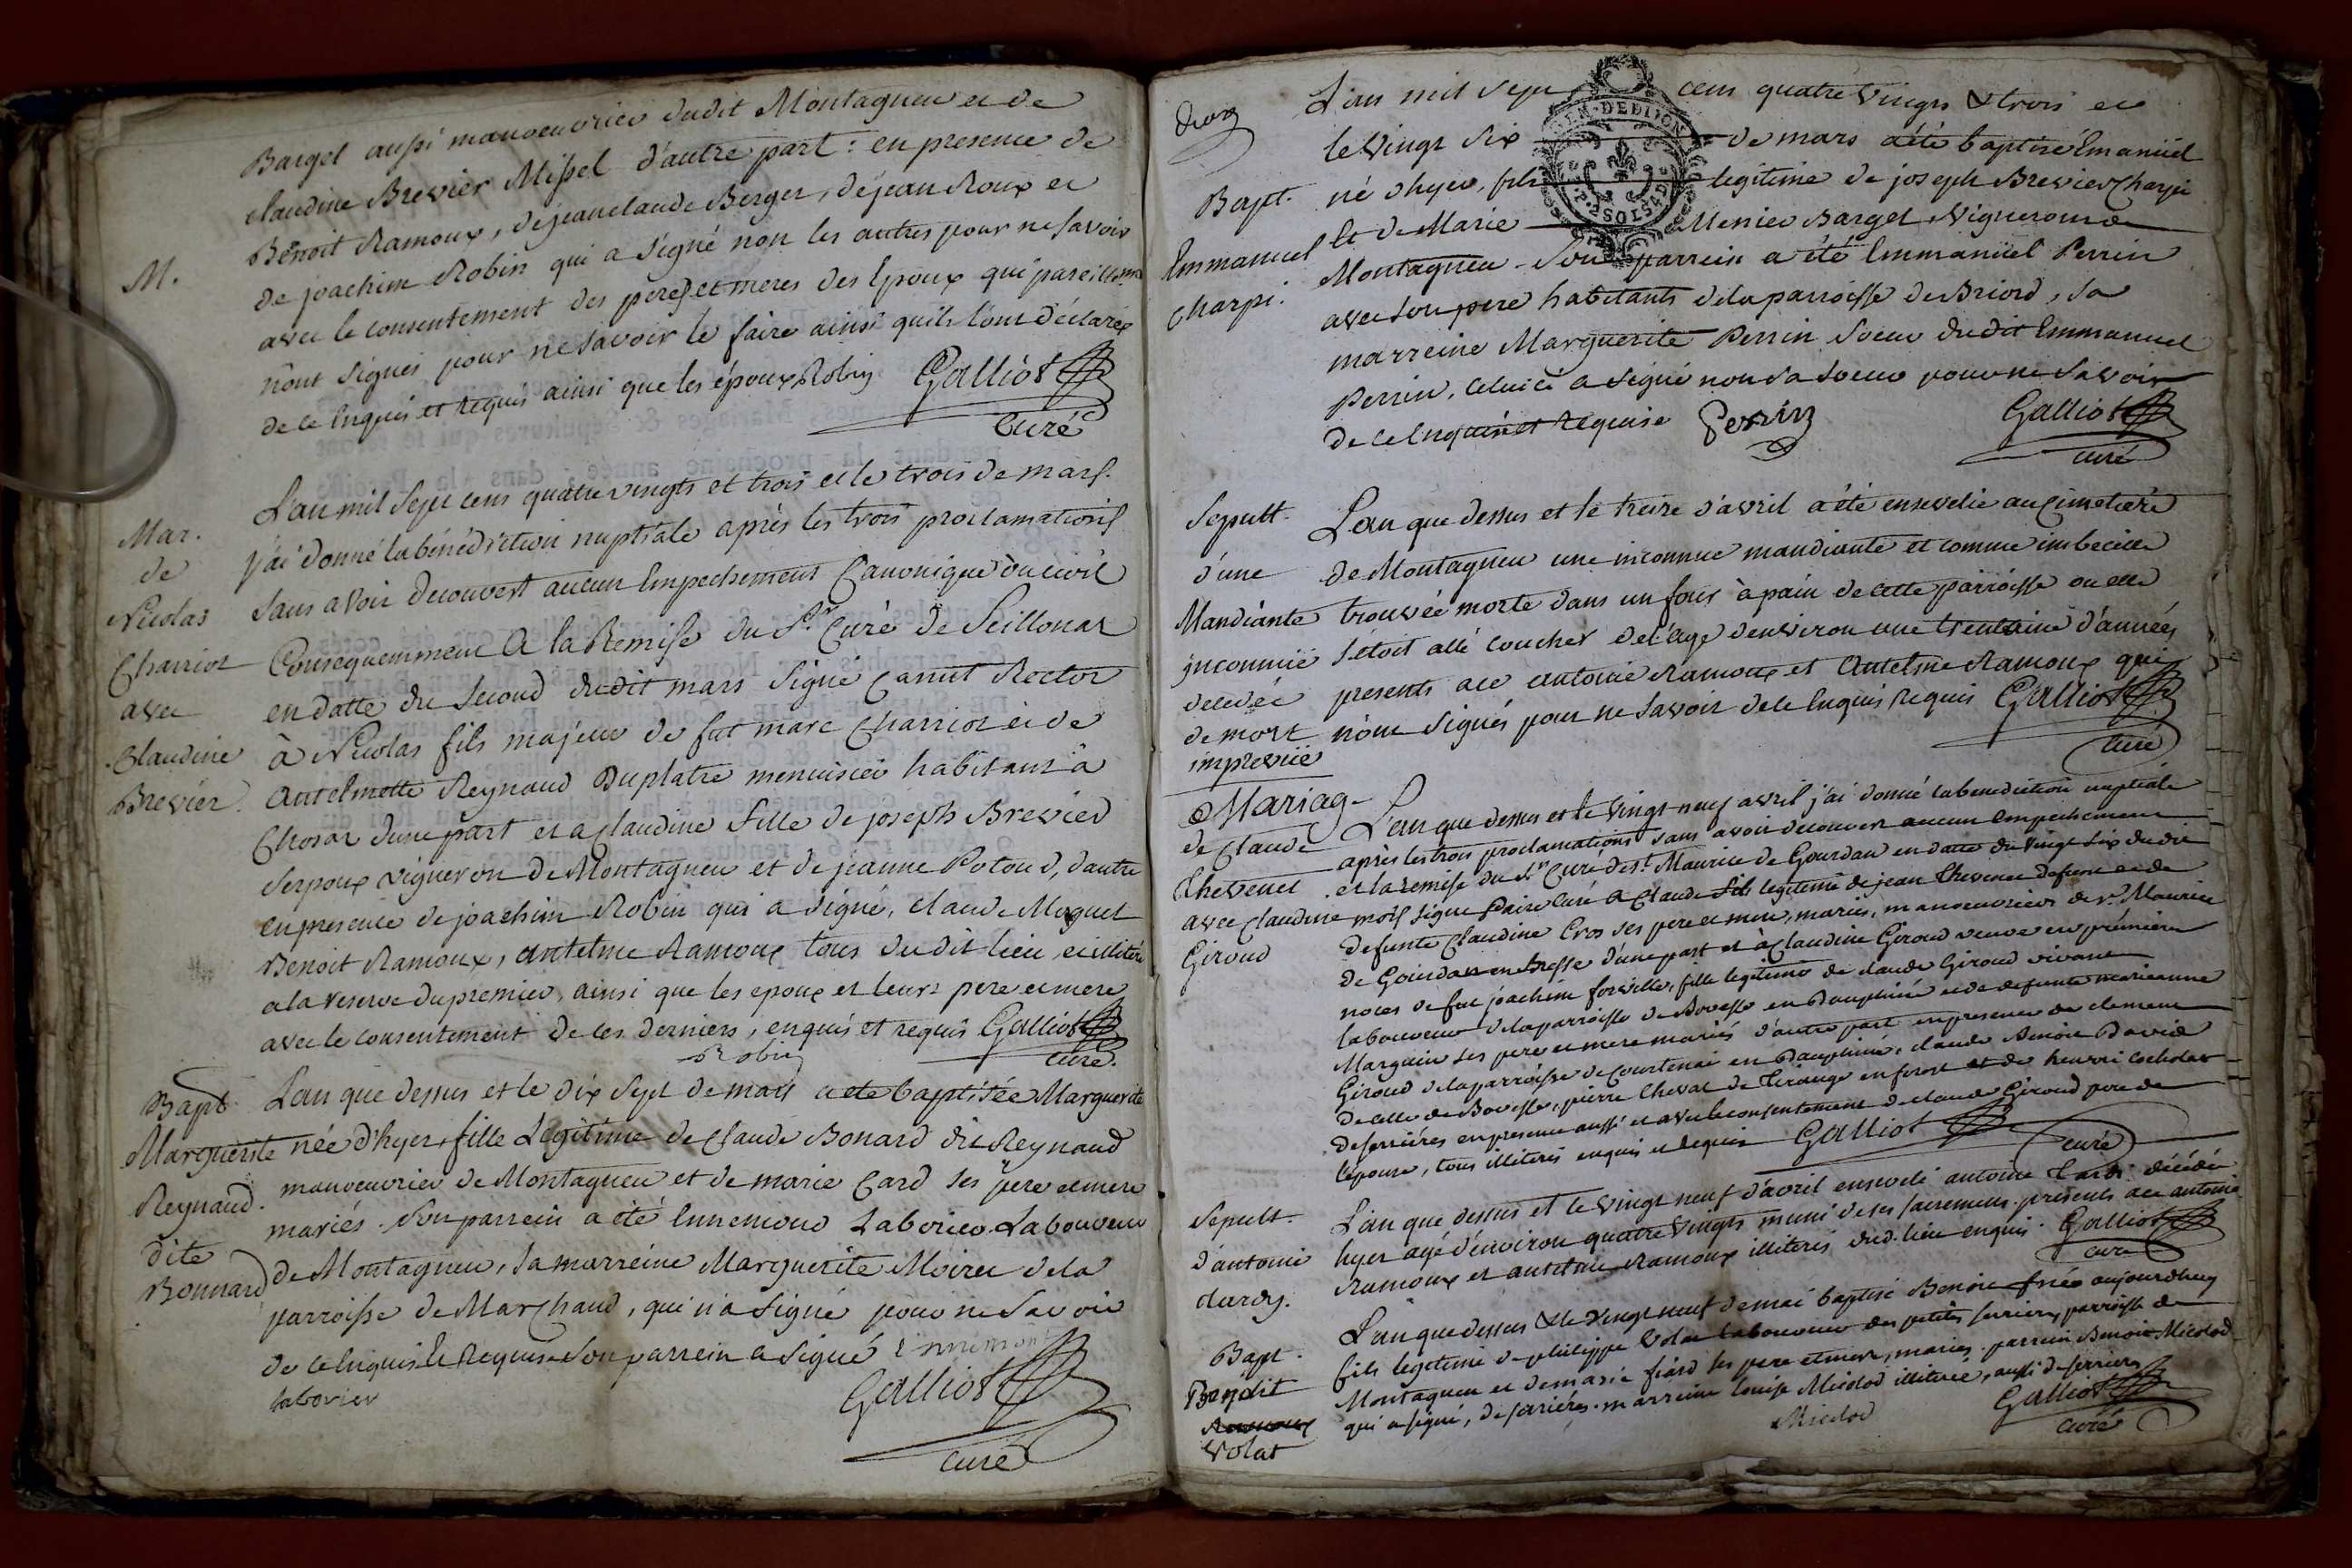 Barget aussi manoeuvrier dudit Montagneu et de
claudine Brevier Missel d'autre part : en presence de
Bénoit Ramoux, de jeanclaude Berger, de jean Roux et
M.
de joachim Robin qui a signé non les autres pour ne savoir
avec le consentement des peres et meres des Epoux qui pareillemt
n'ont signés pour ne savoir le faire ainsi quils l'ont déclarés
de ce enquis et requis ainsi que les époux Robin Galliot
Curé
Mar.
de
Nicolas
Charriot
avec
Claudine
Brevier.
L'an mil sept cens quatre vingts et trois et le trois de mars.
j'ai donné la bénédiction nuptiale après les trois proclamations
sans avoir decouvert aucun Empechement Canonique ou civil
Consequemment a la Remise du Sr. Curé de Seillonas
en datte du second dudit mars signé Canut Rector
à Nicolas fils majeur de fut marc Charriot et de
Antelmette Reynaud Duplatre menuisier habitant à
Chosas d'une part et a Claudine fille de joseph Brevier
Serpoux vigneron de Montagneu et de jeanne Potoud, dautre
en presence de joachim Robin qui a signé, claude Muguet
Benoit Ramoux, antelme Ramoux tous dudit lieu, et illitéré
a la reserve du premier, ainsi que les epoux et leurs pere et mere
avec le consentement de ces derniers, enquis et requis Galliot
Robin Curé.
Bapt
Marguerite
Reynaud.
dite
Bonnard
L'an que dessus et le dix sept de mars a eté baptisée Marguerite
née d'hyer, fille Légitime de Claude Bonard dit Reynaud
manoeuvrier de Montagneu et de marie Card ses pere et mere
mariés. Son parrein a eté Ennemond Laborier Laboureur
de Montagneu, sa marreine Marguerite Moiret de la
parroisse de Marchand, qui n'a signé pour ne savoir
de ce enquise le Requise son parrein a signé Ennemont
laborier
Galliot
Curé
L'an mil sept cens quatre vingts & trois et
le vingt six de mars a été baptisé Emanuel
Bapt.
Emmanuel
Charpi.
né d'hyer, fils legitime de joseph Brevier Charpi
et de Marie Menier Barget Vigneron de
Montagneu. Son parrein a été Emmanuel Perrin
avec son pere habitants de la parroisse de Briord, sa
marreine Marguerite Perrin Soeur dudit Emmanuel
Perrin, celui ci a signé non sa soeur pour ne savoir
de ce enquise et requise Perrin Galliot
curé
Sepult.
d'une
Mandiante
inconnue
decedée
de mort
imprevue
L'an que dessus et le treize d'avril a été ensevelie au Cimetiére
de Montagneu une inconnue mandiante et comme imbecille
trouvée morte dans un four à pain de cette parroisse ou elle
s'étoit allé coucher de l'age d'environ une trentaine d'années
presents ace antoine Ramoux et Antelme Ramoux qui
n'ont signés pour ne savoir de ce enquis requis Galliot
Curé
Mariag.
de Claude
Chevenet
avec Claudine
Giroud
L'an que dessus et le vingt neuf avril j'ai donné la benediction nuptiale
après les trois proclamations sans avoir decouvert aucun empechement
et la remise du Sr Curé de St. Maurice de Gourdan en datte du vingt six dudit
mois signé Paire Curé a Claude fils legitime de jean Chevenet defunt et de
defunte Claudine Cros ses pere et mere, mariés, manoeuvriers de St. Maurice
de Gourdan en Bresse d'une part et à Claudine Giroud veuve en prémiere
noces de fut joachim forville, fille legitime de claude Giroud vivant
laboureur de la parroisse de Bovesse en Dauphiné et de defunte marieanne
Marquin ses pere et mere mariés d'autre part en presence de clement
Giroud de la parroisse de Courtenai en Dauphiné, claude Benoit David
de celle de Bovesse, pierre Cheval de Tirange en forest et de henri Cochelat
de serriéres en presence aussi et avec le consentement de claude Giroud pere de
l'epouse, tous illiterés enquis et requis Galliot curé
Sepult.
d'antoine
dardy.
L'an que dessus et le vingt neuf d'avril enseveli antoine Dardi décédé
hyer agé d'environ quatre vingts muni de ses sacremens. présents ace antoine
Ramoux et antelme Ramoux illiterés dud. lieu enquis. Galliot
curé
Bapt.
Benoit
Volat
L'an que dessus & le vingt neuf de mai baptisé Benoit né aujourdhuy
fils legitime de philippe Volat laboureur des petites serrieres, parroisse de
Montagneu et de marie fiard ses pere et mere, mariés. parrein Benoit Micolod
qui a signé, de serriéres. marreine louise Micolod illiterée, aussi de serrieres
Micolod Galliot
curé